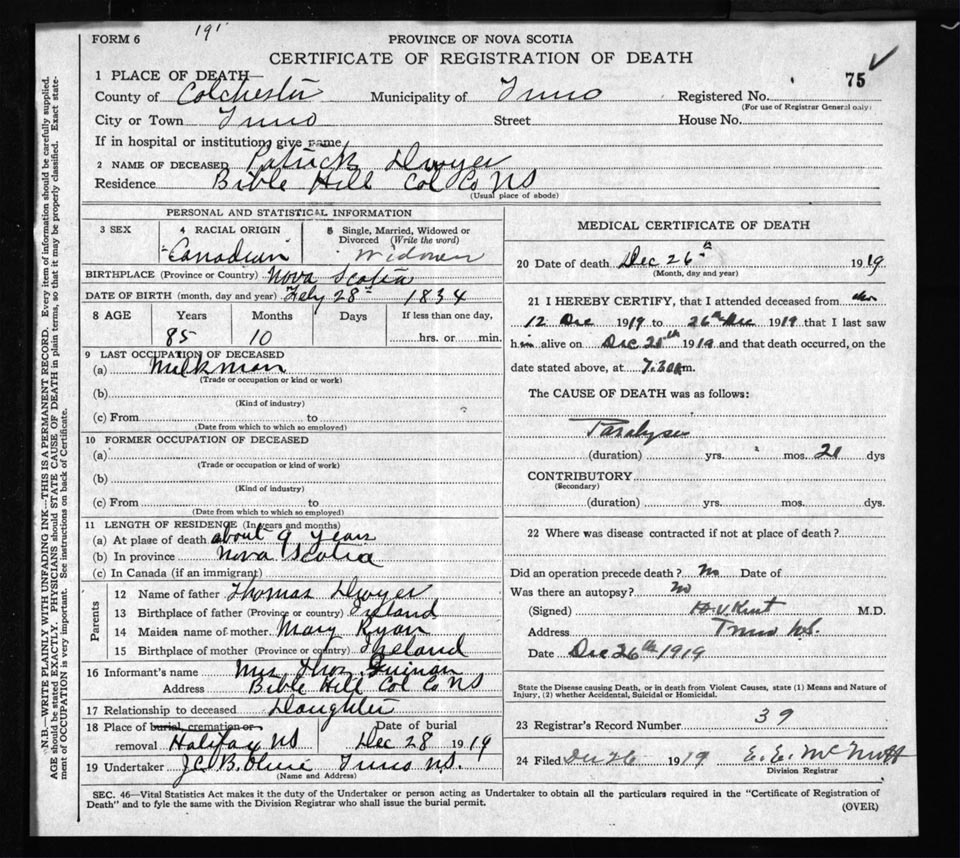 FORM 6
191
PROVINCE OF NOVA SCOTIA
CERTIFICATE OF REGISTRATION OF DEATH
75
1 PLACE OF DEATH—
County of Colchester Municipality of Truro Registered No.
(For use of Registrar General only)
City or Town Truro Street House No.
If in hospital or institution, give name
2 NAME OF DECEASED Patrick Dwyer
Residence Bible Hill Col Co NS
(Usual place of abode)
PERSONAL AND STATISTICAL INFORMATION
3 SEX 4 RACIAL ORIGIN 5 Single, Married, Widowed or Divorced (Write the word)
Canadian Widower
BIRTHPLACE (Province or Country) Nova Scotia
DATE OF BIRTH (month, day and year) Feby 28th 1834
8 AGE Years Months Days If less than one day,
85 10 hrs. or min.
9 LAST OCCUPATION OF DECEASED
(a) Milkman
(Trade or occupation or kind or work)
(b)
(Kind of industry)
(c) From to
(Date from which to which so employed)
10 FORMER OCCUPATION OF DECEASED
(a)
(Trade or occupation or kind of work)
(b)
(Kind of industry)
(c) From to
(Date from which to which so employed)
11 LENGTH OF RESIDENCE (In years and months)
(a) At place of death about 9 years
(b) In province Nova Scotia
(c) In Canada (if an immigrant)
Parents
12 Name of father Thomas Dwyer
13 Birthplace of father (Province or country) Ireland
14 Maiden name of mother Mary Ryan
15 Birthplace of mother (Province or country) Ireland
16 Informant's name Mrs Thos Guinan
Address Bible Hill Col Co NS
17 Relationship to deceased Daughter
18 Place of burial, cremation or removal Halifax NS Date of burial Dec 28 1919
19 Undertaker J.C.B. Olive Truro N.S.
(Name and Address)
MEDICAL CERTIFICATE OF DEATH
20 Date of death Dec 26th 1919
(Month, day and year)
21 I HEREBY CERTIFY, that I attended deceased from
12 Dec 1919 to 26th Dec 1919 that I last saw
him alive on Dec 25th 1919 and that death occurred, on the
date stated above, at 7.30 am.
The CAUSE OF DEATH was as follows:
Paralysis
(duration) yrs. mos. 21 dys
CONTRIBUTORY
(Secondary)
(duration) yrs. mos. dys.
22 Where was disease contracted if not at place of death?
Did an operation precede death? No Date of
Was there an autopsy? No
(Signed) H.V. Kent M.D.
Address Truro N.S.
Date Dec 26th 1919
State the Disease causing Death, or in death from Violent Causes, state (1) Means and Nature of
Injury, (2) whether Accidental, Suicidal or Homicidal.
23 Registrar's Record Number 39
24 Filed Dec 26 1919 E. E. McNutt
Division Registrar
SEC. 46—Vital Statistics Act makes it the duty of the Undertaker or person acting as Undertaker to obtain all the particulars required in the "Certificate of Registration of
Death" and to fyle the same with the Division Registrar who shall issue the burial permit.
(OVER)
N.B.—WRITE PLAINLY WITH UNFADING INK—THIS IS A PERMANENT RECORD. Every item of information should be carefully supplied.
AGE should be stated EXACTLY. PHYSICIANS should STATE CAUSE OF DEATH in plain terms, so that it may be properly classified. Exact state-
ment of OCCUPATION is very important. See instructions on back of Certificate.